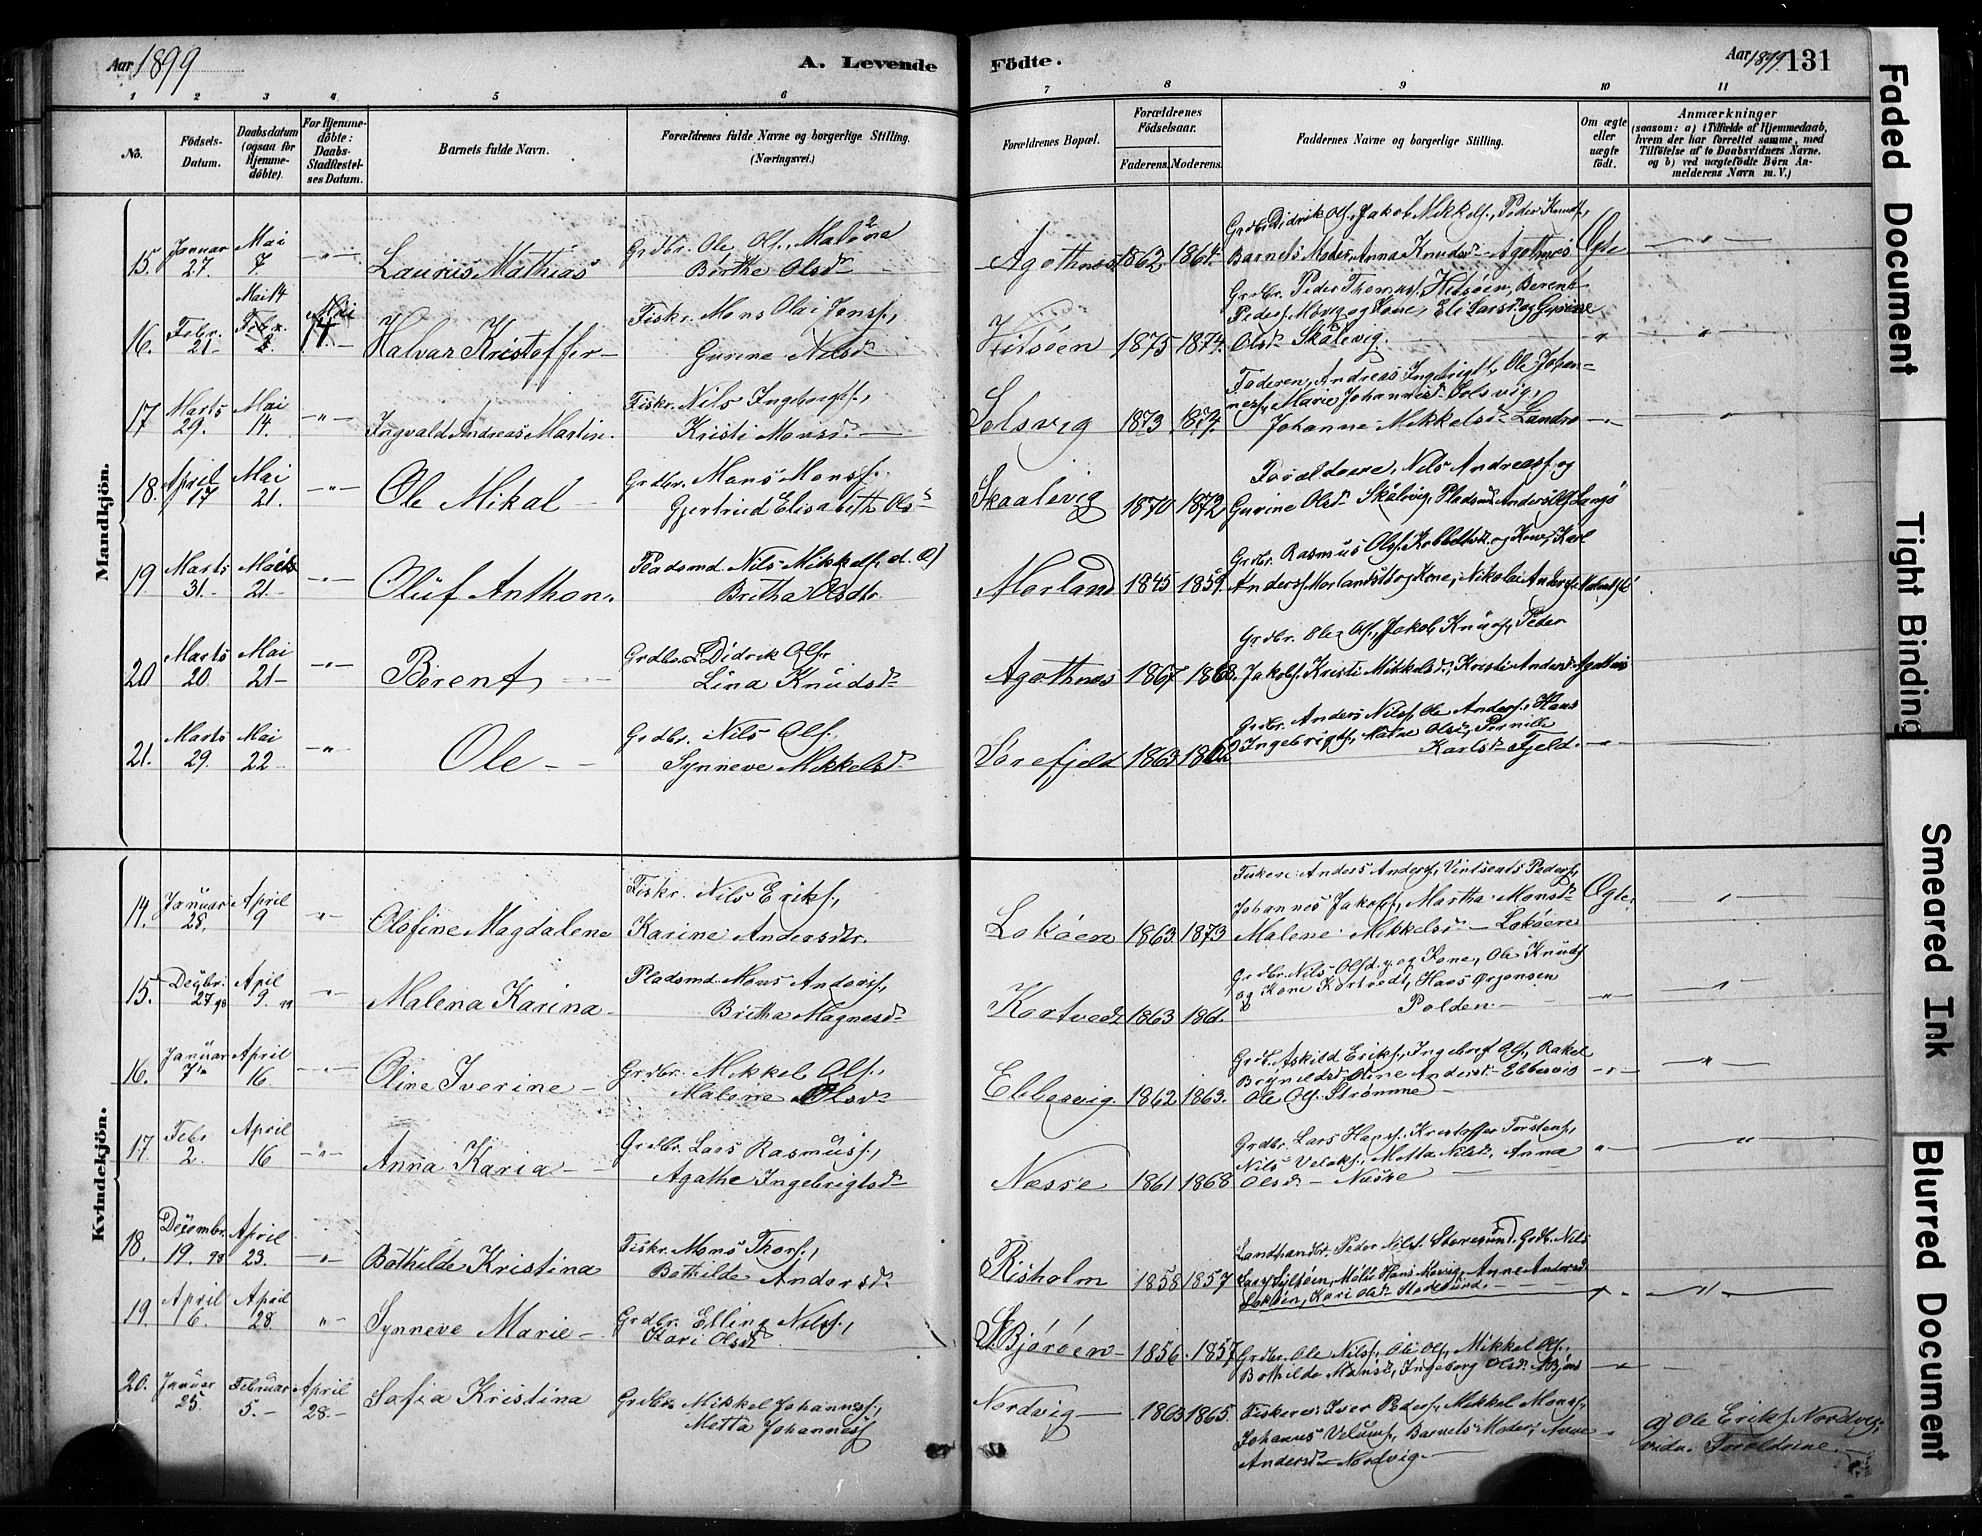 Aar 1899
A. Levende
Födte.
Aar 1899. 131
1 2 3 4 5 6 7 8 9 10 11
No.
Födsels-
Datum.
Daabsdatum
(ogsaa for
Hjemme-
döbte).
For Hjemme-
döbte:
Daabs-
Stadfæstel-
ses Datum.
Barnets fulde Navn.
Forældrenes fulde Navne og borgerlige Stilling.
(Næringsvei.)
Forældrenes Bopæl.
Forældrenes
Födselsaar.
Faderens. Moderens.
Faddernes Navne og borgerlige Stilling.
Om ægte
eller
uægte
födt.
Anmærkninger
(saasom: a) i Tilfælde af Hjemmedaab,
hvem der har forrettet samme, med
Tilföielse af to Daabsvidners Navne.
og b) ved uægtefödte Börn An-
melderens Navn m. V.)
Mandkjön.
15. Januar 27. Mai 7 -"- Laurits Mathias
Grdbr. Ole Ols.,
Birthe Olsdr
Agothnes 1862 1864
Grdbr. Didrik Ols., Jakob Mikkels., Peder Knuds.,
Barnets Moder, Anna Knudsdr Agothnes
Ægte
16. Febr. 21 Mai 14 Halvar Kristoffer
Fiskr. Mons Olai Jons.,
Gurine Nilsdr
Hitsöen 1875 1874.
Grdbr. Peder Thomas. Hitsöen, Berent
Peders. og Kone, Eli Larsd. og Gurine
Olsdr Skålevig.
17 Marts 29. Mai 14. -"- Ingvald Andreas Martin.
Fiskr. Nils Ingebrigts.,
Kristi Monsdr.
Solsvig 1873 1874.
Faderen, Andreas Ingebrigts., Ole Johan=
nes., Marie Johannesd. Solsvig,
Johanne Mikkelsdr Landro
18. April 17 Mai 21. -"- Ole Mikal
Grdbr. Mons Mons.
Gjertrud Elisabeth Ols
Skaalevig 1870 1872
Forældrene, Nils Andreass. og
Gurine Olsdr Skålevig, Pladsmd Anders
19. Marts 31. Marts 21. -"- Oluf Anthon.
Pladsmd Nils Mikkels.
Britha Olsdtr.
Morland 1845 1859.
Grdbr. Rasmus Ols. og Kone, Karl
Anders. og Kone, Nikolai Anders.
20 Marts 20. Mai 21 -"- Berent
Grdbr. Didrik Ols.
Lina Knudsdr
Agothnes 1867 1868.
Grdbr. Ole Ols., Jakob Knuds., Peder
Jakobs. Kristi Mikkelsd., Kristi Andersd. Agotnes
21. Marts 29. Mai 22 -"- Ole
Grdbr. Nils Ols.,
Synneve Mikkelsdr
Sörefjeld 1863 1862
Grdbr. Anders Nils., Ole Anders., Hans
Ingebrigts., Olsd., Pernille
Karlsdr Fjeld.
Kvindekjön.
14. Januar 28. April 9 -"- Olofine Magdalene
Fiskr. Nils Eriks.,
Karine Andersdtr.
Loköen 1863 1873
Fiskere Anders Anders., Vintsents Peders.,
Johannes Jakobs., Martha Monsdr
Malene Mikkelsd. Loköen
Ægte.
15. Decbr. 27 98 April 9. 99 -"- Malena Karina
Pladsmd Mons Anders.,
Britha Magnesdr
Kortvedt 1863 186
Grdbr. Nils Ols. og Kone, Ole Knuds.
og Kone Kortvedt, Hans Örgensen
Polden
16. Januar 7 April 16 -"- Oline Iverine
Grdbr. Mikkel Ols.,
Malene Olsdr
Ebbesvig 1862 1863.
Grdbr. Askild Eriks., Ingebrigt Ols., Rakel
Brynildsd. Oline Andersd. Ebbesvig
Ole Ols. Strömme
17. Febr 2. April 16 -"- Anna Karia
Grdbr. Lars Rasmus.,
Agathe Ingebrigtsdr
Nesse 1861 1868
Grdbr. Lars Hans., Kristoffer Torstens.,
Nils Metta Nilsd., Anna
Olsdr Nesse
18. Decembr. 19. 98 April 23. -"- Bothilde Kristina
Fiskr. Mons Thors.,
Bothilde Andersdr
Risholm 1858 1857
Landhandler Peder Nils. Storesund, Grdbr. Nils
Lars. Anne Andersd.
Loköen, Kari Olsdr Storesund.
19. April 16. April 28. -"- Synneve Marie
Grdbr. Elling Nils.,
Kari Olsdr
Björöen 1856. 1857
Grdbr. Ole Nils., Ole Ols., Mikkel Ols.,
Bothilde Monsd., Ingeborg Olsdr
20. Januar 25. Februar 5. April 28. Sofia Kristina
Grdbr. Mikkel Johannes.,
Metta Johannes
Nordvig 1863 1865.
Fiskerne Iver Peders., Mikkel Mons.,
Johannes Barnets Moder, Anne
Andersdr Nordvig
a) Ole Eriks. Nordvig,
vidn. Forældrene.
Faded Document
Tight Binding
Smeared Ink
Blurred Document